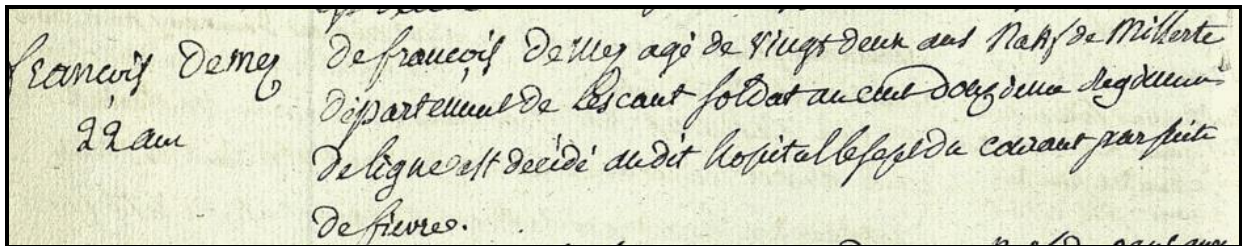 françois Demey
22 ans
de françois Demey agé de vingt deux ans Natif de Millerte
département de Lescaut soldat au cent douzieme Regiment
de ligne est décédé audit hospital le sept du courant par suite
de fievres.